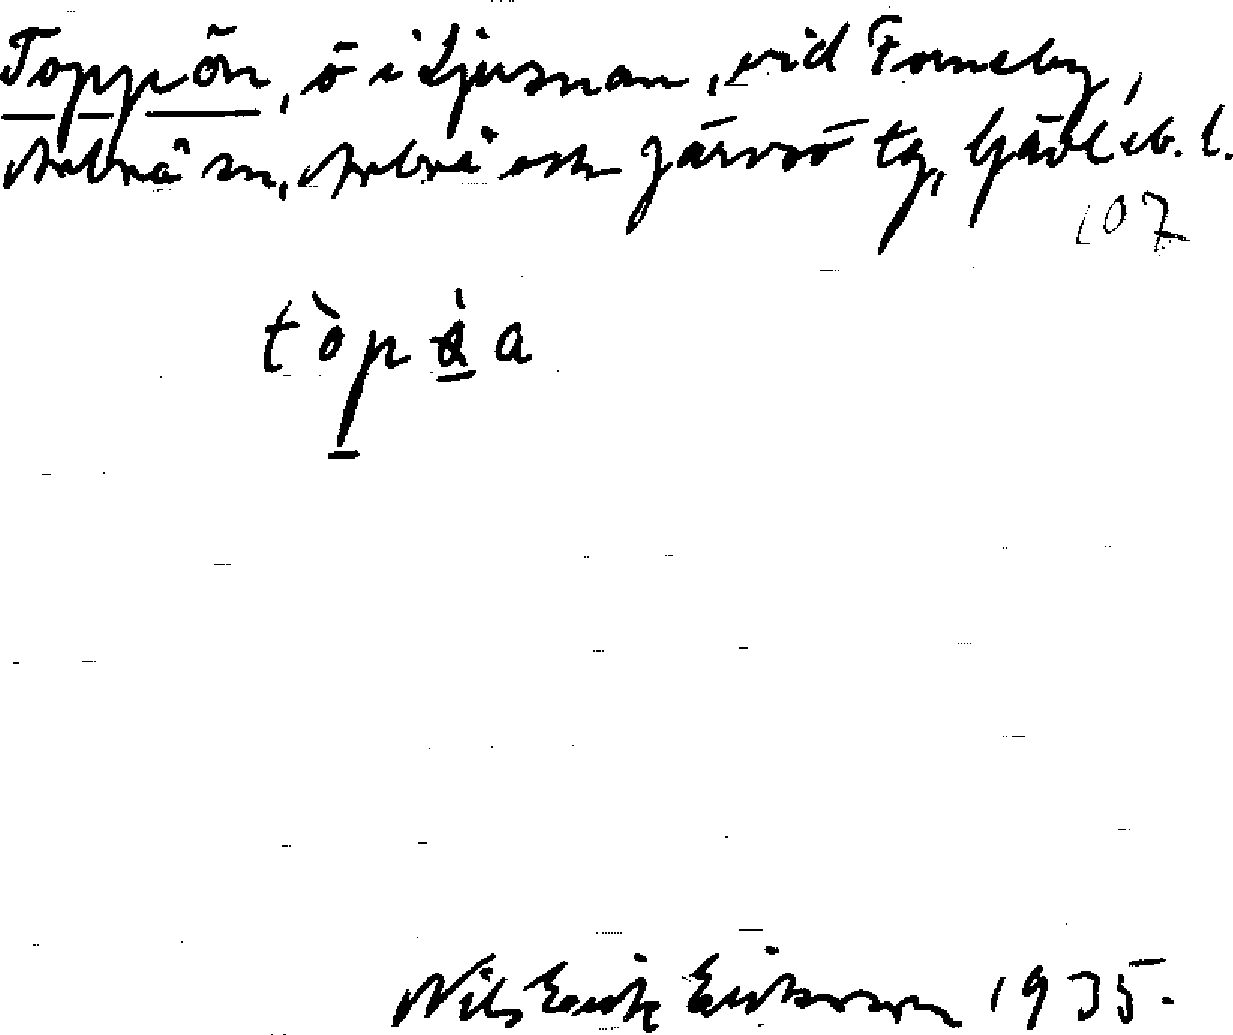 Toppön, ö i Ljusnan, vid Forneby,
Arbrå sn, Arbrå och Järvsö tg, Gävleb. l.
107
tòpàa
Nils Erik Eriksson 1935.